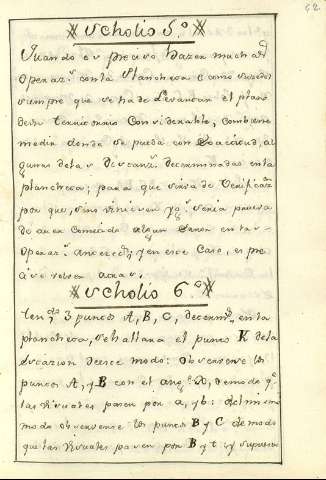 62.
Scholio 5.º
Quando es preciso hazer muchas
Operaz.s con la Plancheta como sucede
siempre que se ha de Levantar el plano
de un territorio Considerable, combiene
medir donde se pueda con exactitud, al
gunas de las Distanz.s determinadas en la
plancheta; para que sirva de Verificaz.n
por que, si no vinieran yg.s seria prueva
de aver Cometido algun error en las
Operaz.s antecede.s, y en este Caso, es pre
ciso volver atras.
Scholio 6º
Ten.do 3 puntos A, B, C, determ.s en la
plancheta, se hallara el punto K de la
estazion de este modo: Observense los
puntos A, y B con el ang.º de modo q.e
las visuales pasen por a, y b: del mismo
modo observense los puntos B y C de modo
que las visuales pasen por B y t: y supuesto